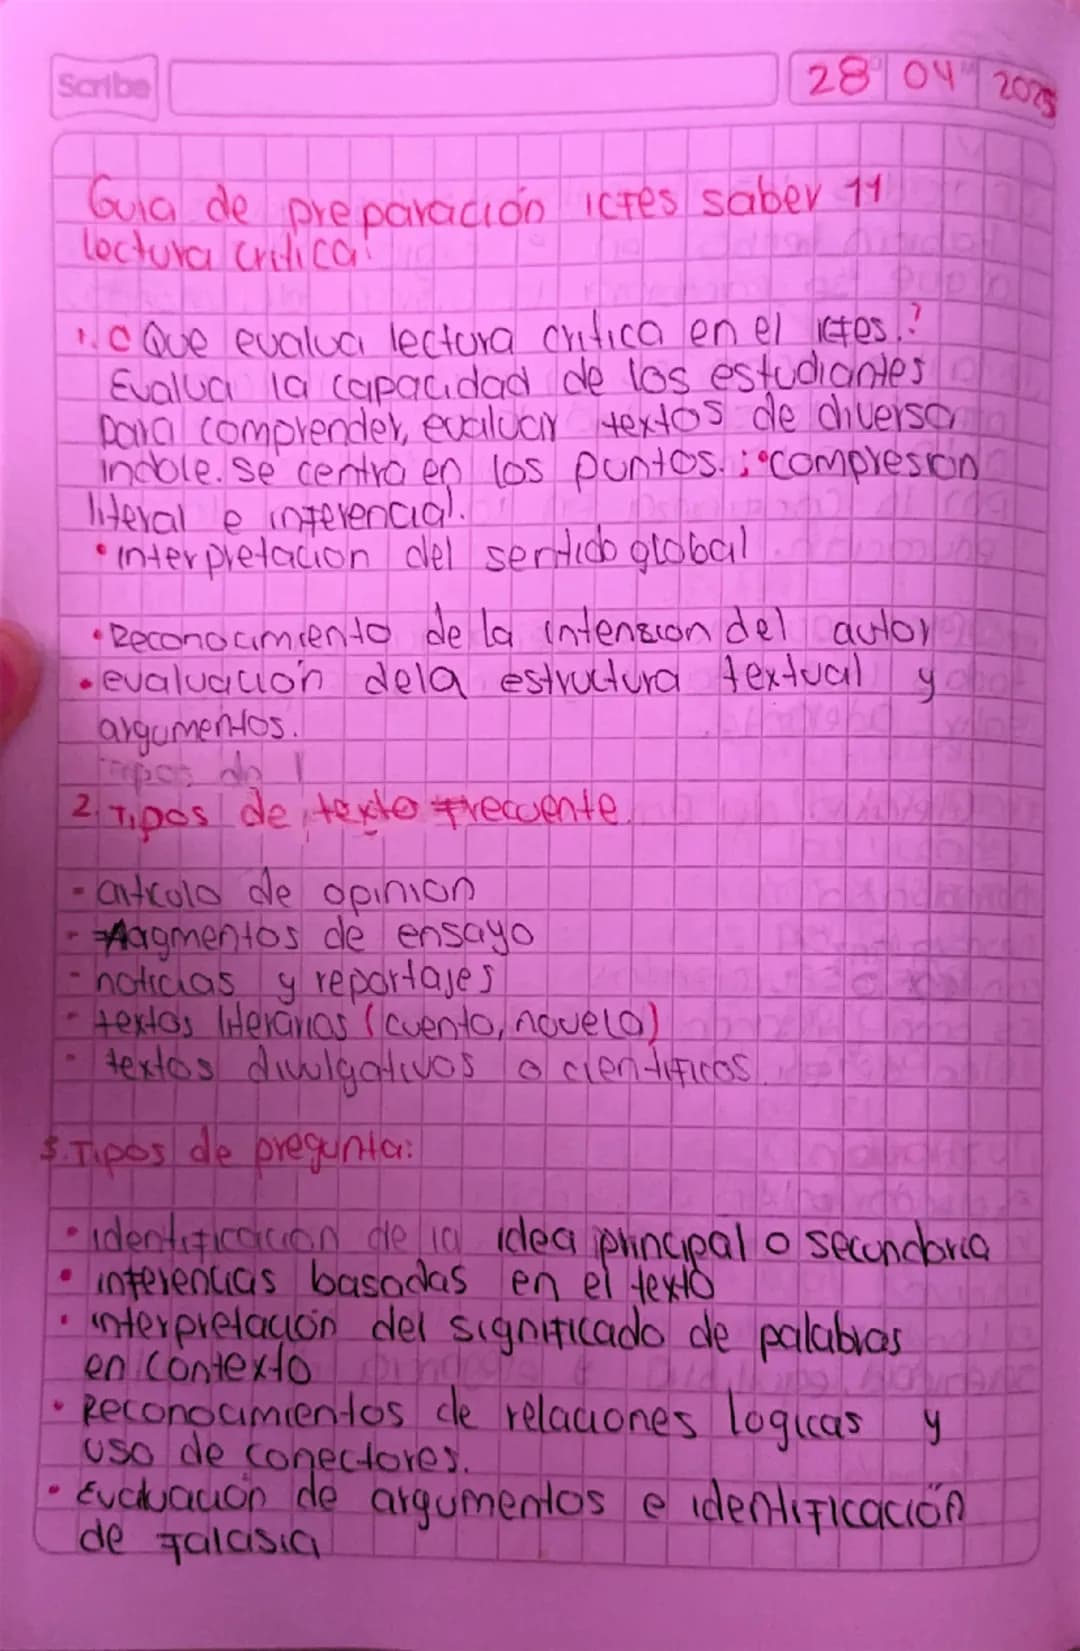 Scribe
28 04 2025
Guia de preparación icfes saber 11
lectura critica:
1. ¿Que evalua lectura critica en el icfes.?
Evalua la capacidad de los estudiantes
para comprender, evaluar textos de diversa
indole. se centra en los puntos. : •compresion
literal e inferencial.
• interpretacion del sentido global
• Reconocimiento de la intension del autor
• evaluación dela estructura textual y
argumentos.
Tipos de
2. Tipos de texto frecuente.
- articulo de opinion
- fragmentos de ensayo
- noticias y reportajes
- textos literarios (cuento, novela)
- textos divulgativos o cientificos.
3. Tipos de pregunta:
• identificacion de la idea principal o secundaria
• inferencias basadas en el texto
• interpretación del significado de palabras
en contexto
• Reconocimientos de relaciones logicas y
uso de conectores.
• Evaluación de argumentos e identificación
de falasia